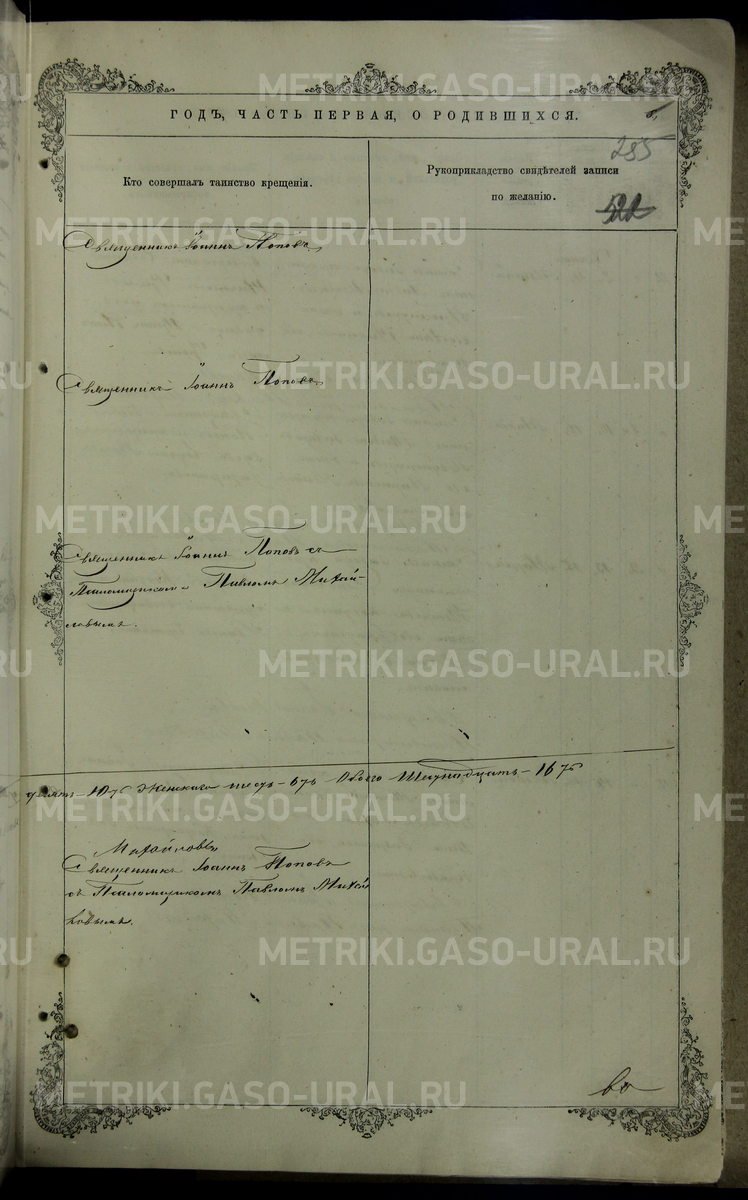 ГОДЪ, ЧАСТЬ ПЕРВАЯ, О РОДИВШИХСЯ.
285
Кто совершалъ таинство крещенія.
Рукоприкладство свидѣтелей записи
по желанію.
522
Священникъ Іоаннъ Поповъ
Священникъ Іоаннъ Поповъ
Священникъ Іоаннъ Поповъ съ
Псаломщикомъ Павломъ Михай-
ловымъ.
10ть Женскаго шесть – 6ть Обоего Шестнадцать – 16ть
Михайловъ
Священникъ Іоаннъ Поповъ
съ Псаломщикомъ Павломъ Михай
ловымъ.
METRIKI.GASO-URAL.RU